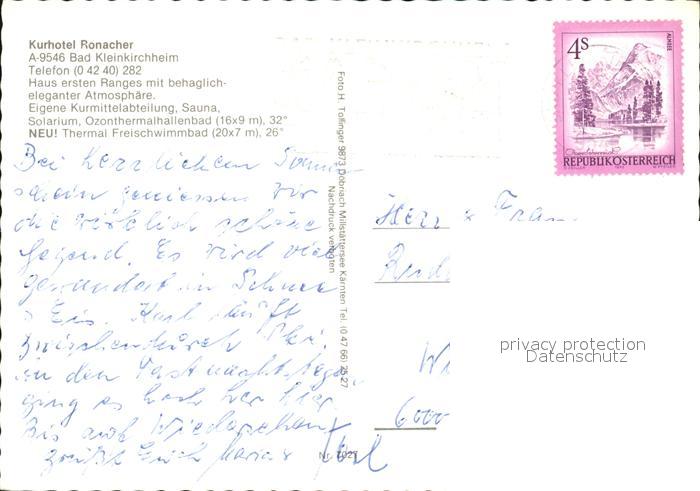 Kurhotel Ronacher
A-9546 Bad Kleinkirchheim
Telefon (0 42 40) 282
Haus ersten Ranges mit behaglich-
eleganter Atmosphäre.
Eigene Kurmittelabteilung, Sauna,
Solarium, Ozonthermalhallenbad (16x9 m), 32°
NEU! Thermal Freischwimmbad (20x7 m), 26°
Bei herrlichem Sonnen
schein geniessen wir
die wirklich schöne
Gegend. Es wird viel
gewandert in Schnee
& Eis. Karl läuft
zwischendurch Ski.
in den Fastnachtstagen
ging es hoch her hier.
Bis auf Wiedersehen
grüßt Euch Maria & Karl
Foto H. Tollinger 9873 Döbriach Millstättersee Kärnten Tel. (0 47 66) 25 27
Nachdruck verboten
Nr. 7027
4S
ALMSEE
REPUBLIK ÖSTERREICH
Herr & Frau
6000
privacy protection
Datenschutz